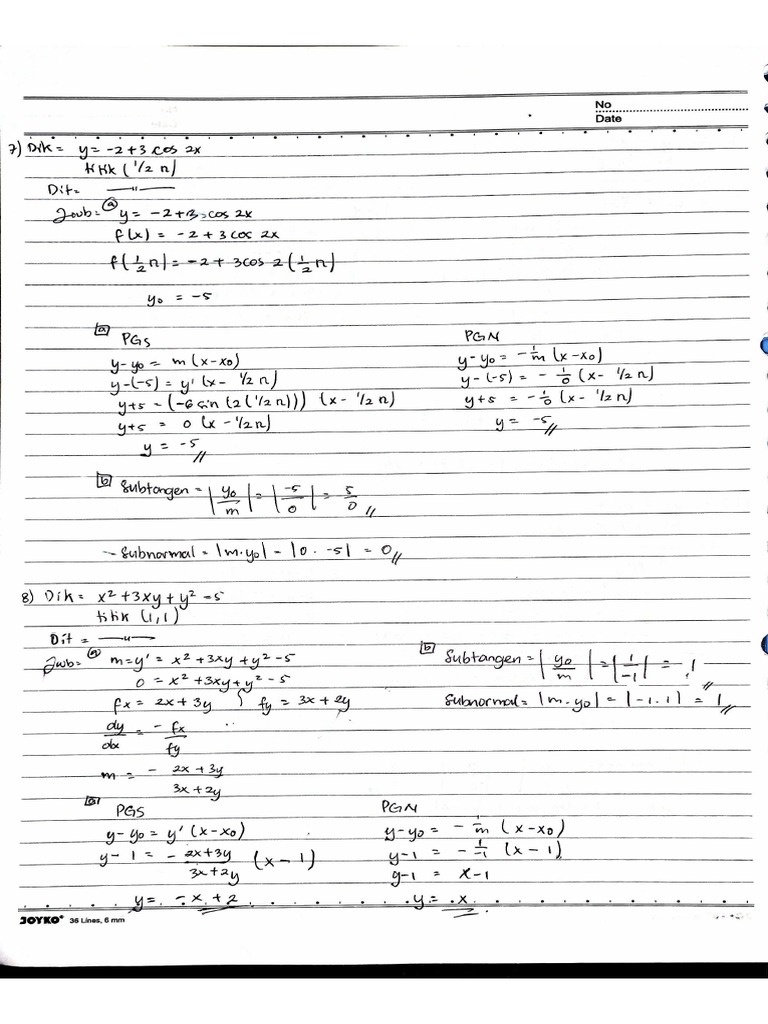 No
Date
7) Dik = y = -2 + 3 cos 2x
titik (1/2 π)
Dit = —"—
Jwb = ⓐ y = -2 + 3 cos 2x
f(x) = -2 + 3 cos 2x
f(1/2 π) = -2 + 3 cos 2 (1/2 π)
y₀ = -5
[a] PGS
y - y₀ = m (x - x₀)
y - (-5) = y' (x - 1/2 π)
y + 5 = (-6 sin (2 (1/2 π))) (x - 1/2 π)
y + 5 = 0 (x - 1/2 π)
y = -5 //
PGN
y - y₀ = - 1/m (x - x₀)
y - (-5) = - 1/0 (x - 1/2 π)
y + 5 = - 1/0 (x - 1/2 π)
y = -5 //
[b] Subtangen = |y₀/m| = |-5/0| = 5/0 //
- Subnormal = |m . y₀| = |0 . -5| = 0 //
8) Dik = x² + 3xy + y² = 5
titik (1,1)
Dit = —"—
Jwb = ⓐ m = y' = x² + 3xy + y² - 5
0 = x² + 3xy + y² - 5
fx = 2x + 3y } fy = 3x + 2y
dy/dx = - fx/fy
m = - 2x + 3y / 3x + 2y
[b] Subtangen = |y₀/m| = |1/-1| = 1 //
Subnormal = |m . y₀| = |-1 . 1| = 1 //
[a] PGS
y - y₀ = y' (x - x₀)
y - 1 = - 2x + 3y / 3x + 2y (x - 1)
y = -x + 2
PGN
y - y₀ = - 1/m (x - x₀)
y - 1 = - 1/-1 (x - 1)
y - 1 = x - 1
y = x
JOYKO 36 Lines, 6 mm